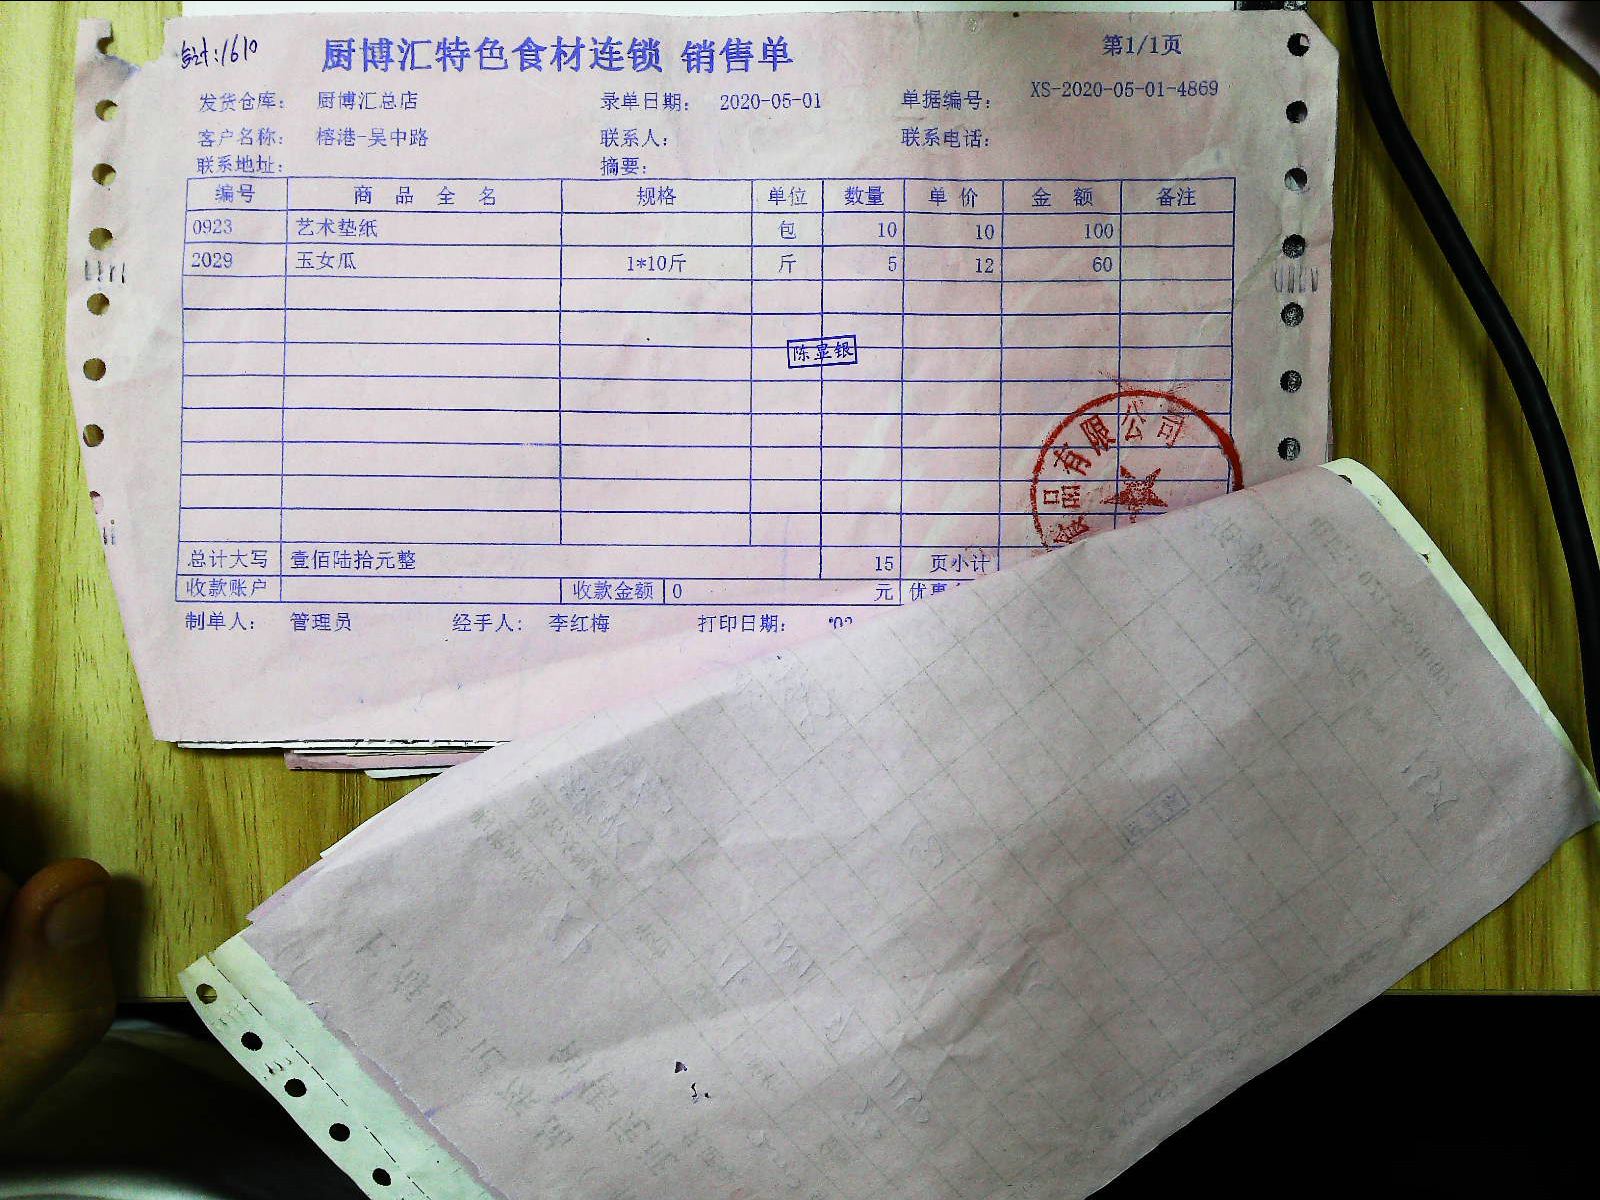 合计:1610
厨博汇特色食材连锁 销售单 第1/1页
发货仓库: 厨博汇总店 录单日期: 2020-05-01 单据编号: XS-2020-05-01-4869
客户名称: 榕港-吴中路 联系人: 联系电话:
联系地址: 摘要:
编号 商品全名 规格 单位 数量 单价 金额 备注
0923 艺术垫纸 包 10 10 100
2029 玉女瓜 1*10斤 斤 5 12 60
陈显银
品有限公司
总计大写 壹佰陆拾元整 15 页小计
收款账户 收款金额 0 元 优惠
制单人: 管理员 经手人: 李红梅 打印日期: